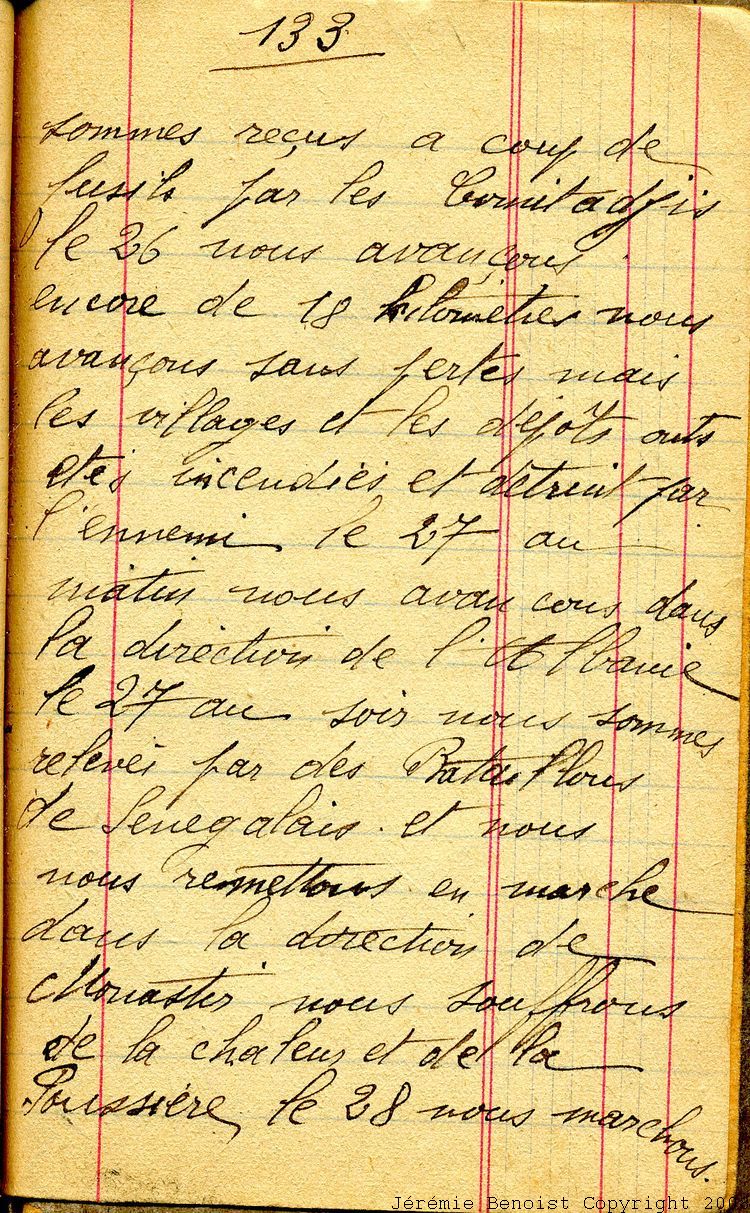 133
sommes reçus a coup de
fusils par les Comitadjis
le 26 nous avançons
encore de 18 kilomètres nous
avançons sans pertes mais
les villages et les dépôts onts
etés incendiés et détruit par
l'ennemi le 27 au
matin nous avancons dans
la direction de l'Albanie
le 27 au soir nous sommes
relevés par des Bataillons
de Senegalais. et nous
nous remettons en marche
dans la direction de
Monastir nous souffrons
de la chaleur et de la
Poussière, le 28 nous marchons.
Jérémie Benoist Copyright 200